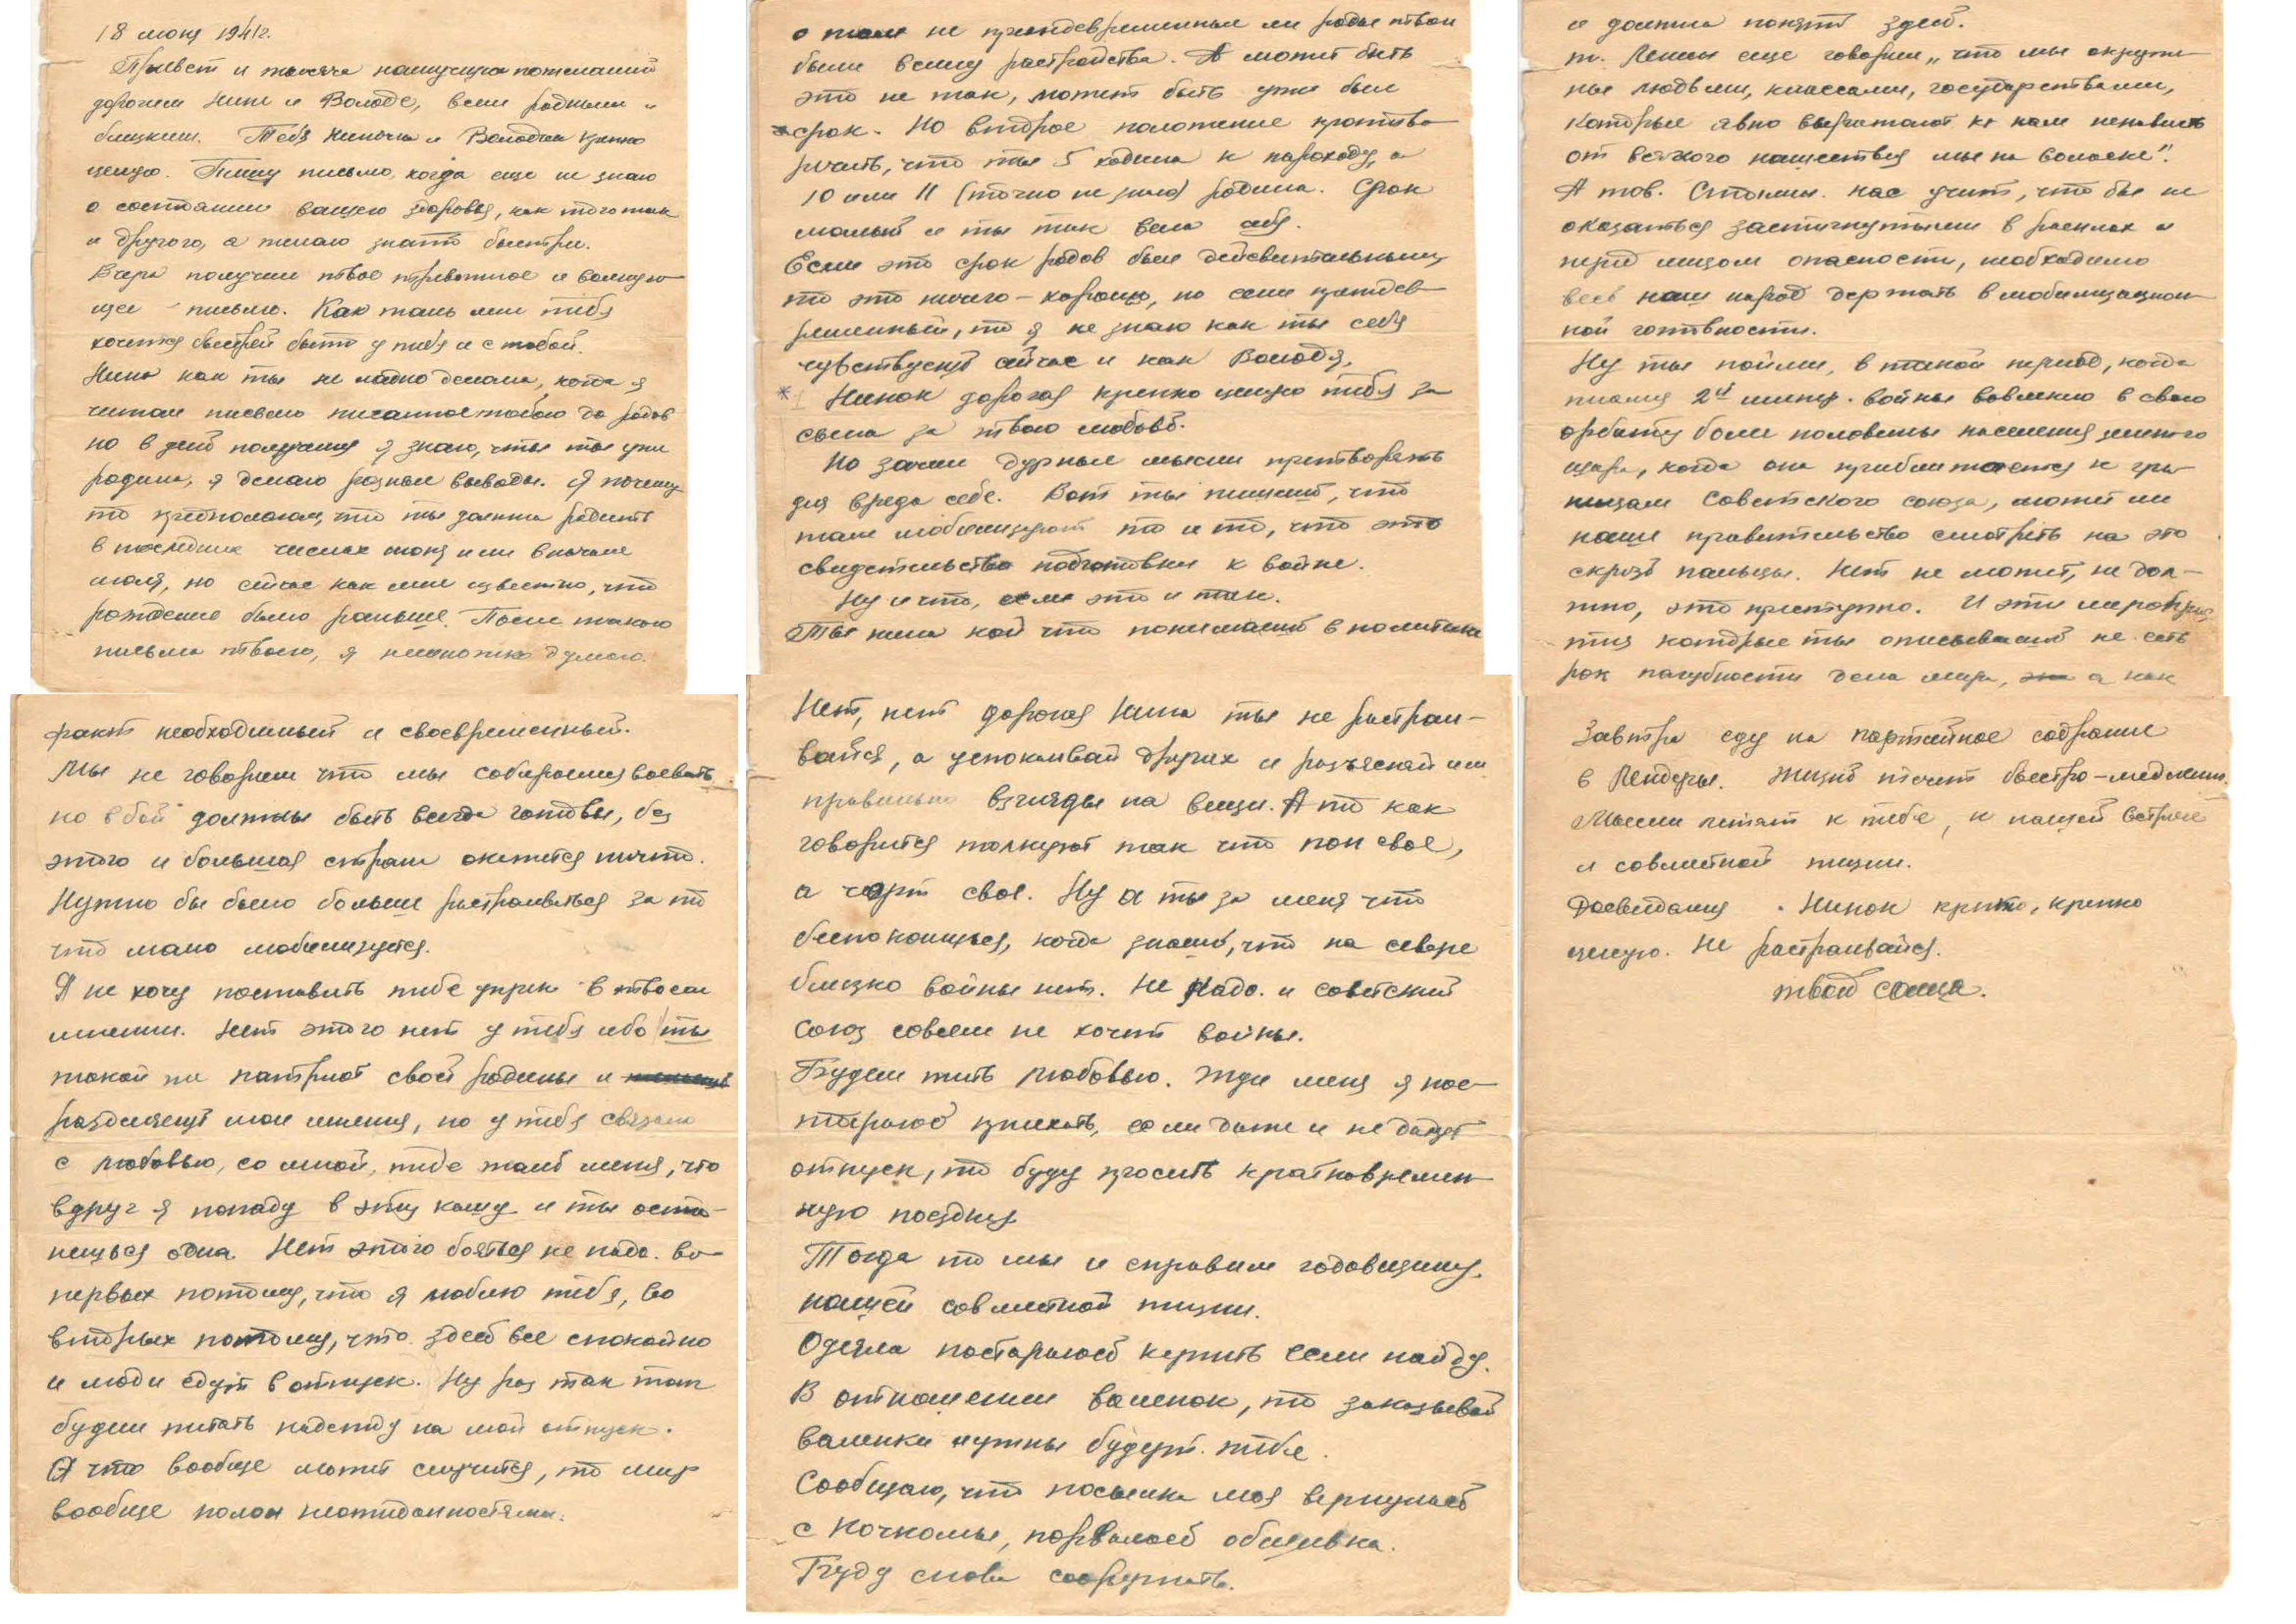 18 июня 1941г.
Привет и тысяча наилучших пожеланий
дорогим Нине и Володе, всем родным и
близким. Тебя Ниночка и Володьку крепко
целую. Пишу письмо, когда еще не знаю
о состоянии вашего здоровья, как того так
и другого, а желаю знать быстрей.
Вчера получил твое тревожное и волную-
щее письмо. Как жаль мне тебя
хочется быстрей быть у тебя и с тобой.
Нина как ты не ладно делала, когда я
читал письмо писанное тобою до родов
но в день получения я знаю, что ты уже
родила, я делаю разные выводы. Я почему
то предполагал, что ты должна родить
в последних числах июня или в начале
июля, но сейчас как мне известно, что
рождение было раньше. После такого
письма твоего, я немножко думаю.
о том не преждевременные ли роды твои
были всему растройства. А может быть
это не так, может быть уже был
срок. Но второе положение противо-
речить, что ты 5 ходила к пароходу, а
10 или 11 (точно не знаю) родила. Срок
малый и ты так вела себя.
Если это срок родов был действительным,
то это ничего – хорошо, но если преждев-
ременный, то я не знаю как ты себя
чувствуешь сейчас и как Володя.
* Нинок дорогая крепко целую тебя за
сына за твою любовь.
Но зачем дурные мысли претворять
для вреда себе. Вот ты пишешь, что
там мобилизуют то и то, что это
свидетельство подготовки к войне.
Ну и что, если это и так.
Ты нина кой что понимаешь в политике
и должна понять здесь.
т. Ленин еще говорил „что мы окруже-
ны людьми, классами, государствами,
которые явно выражают к нам ненависть
от всякого нашествия мы на волоске".
А тов. Сталин. нас учит, что бы не
оказаться застигнутыми в расплох и
перед лицом опасности, необходимо
весь наш народ держать в мобилизацион-
ной готовности.
Ну ты пойми, в такой период, когда
пламя 2й импер. войны вовлекло в свою
орбиту более половины населения земного
шара, когда она приближается к гра-
ницам Советского союза, может ли
наше правительство смотреть на это
скрозь пальцы. Нет не может, не дол-
жно, это преступно. И эти мероприя
тия которые ты описываешь не есть
рок пагубности дела мира, а как
факт необходимый и своевременный.
Мы не говорим что мы собираемся воевать
но в бой должны быть всегда готовы, без
этого и большая страна окажется ничто.
Нужно бы было больше растраиваться за то
что мало мобилизуется.
Я не хочу поставить тебе упрек в твоем
мнении. Нет этого нет у тебя ибо ты
такой же патриот своей родины и
разделяешь мои мнения, но у тебя связано
с любовью, со мной, тебе жаль меня, что
вдруг я попаду в эту кашу и ты оста-
нешься одна. Нет этого бояться не надо. во-
первых потому, что я люблю тебя, во
вторых потому, что здесь все спокойно
и люди едут в отпуск. Ну раз так то и
будем питать надежду на мой отпуск.
А что вообще может случится, то мир
вообще полон неожиданностями.
Нет, нет дорогая Нина ты не растраи-
вайся, а успокаивай других и разъясняй им
правильно взгляды на вещи. А то как
говорится толкуют так что поп свое,
а чорт свое. Ну а ты за меня что
беспокоишься, когда знаешь, что на севере
близко войны нет. Не надо. и советский
союз совсем не хочет войны.
Будем жить любовью. Жди меня я пос-
тараюсь приехать, если даже и не дадут
отпуск, то буду просить кратковремен-
ную поездку
Тогда то мы и справим годовщину.
нашей совместной жизни.
Одеяла постараюсь купить если найду.
В отношении валенок, то заказывай
валенки нужны будут. тебе.
Сообщаю, что посылка моя вернулась
с Кочкомы, порвалась обшивка.
Буду снова сооружать.
Завтра еду на партийное собрание
в Лендеры. Жизнь течет быстро-медленно.
Мысли летят к тебе, к нашей встрече
и совместной жизни.
Досвидания. Нинок крепко, крепко
целую. Не растраивайся.
твой Саша.